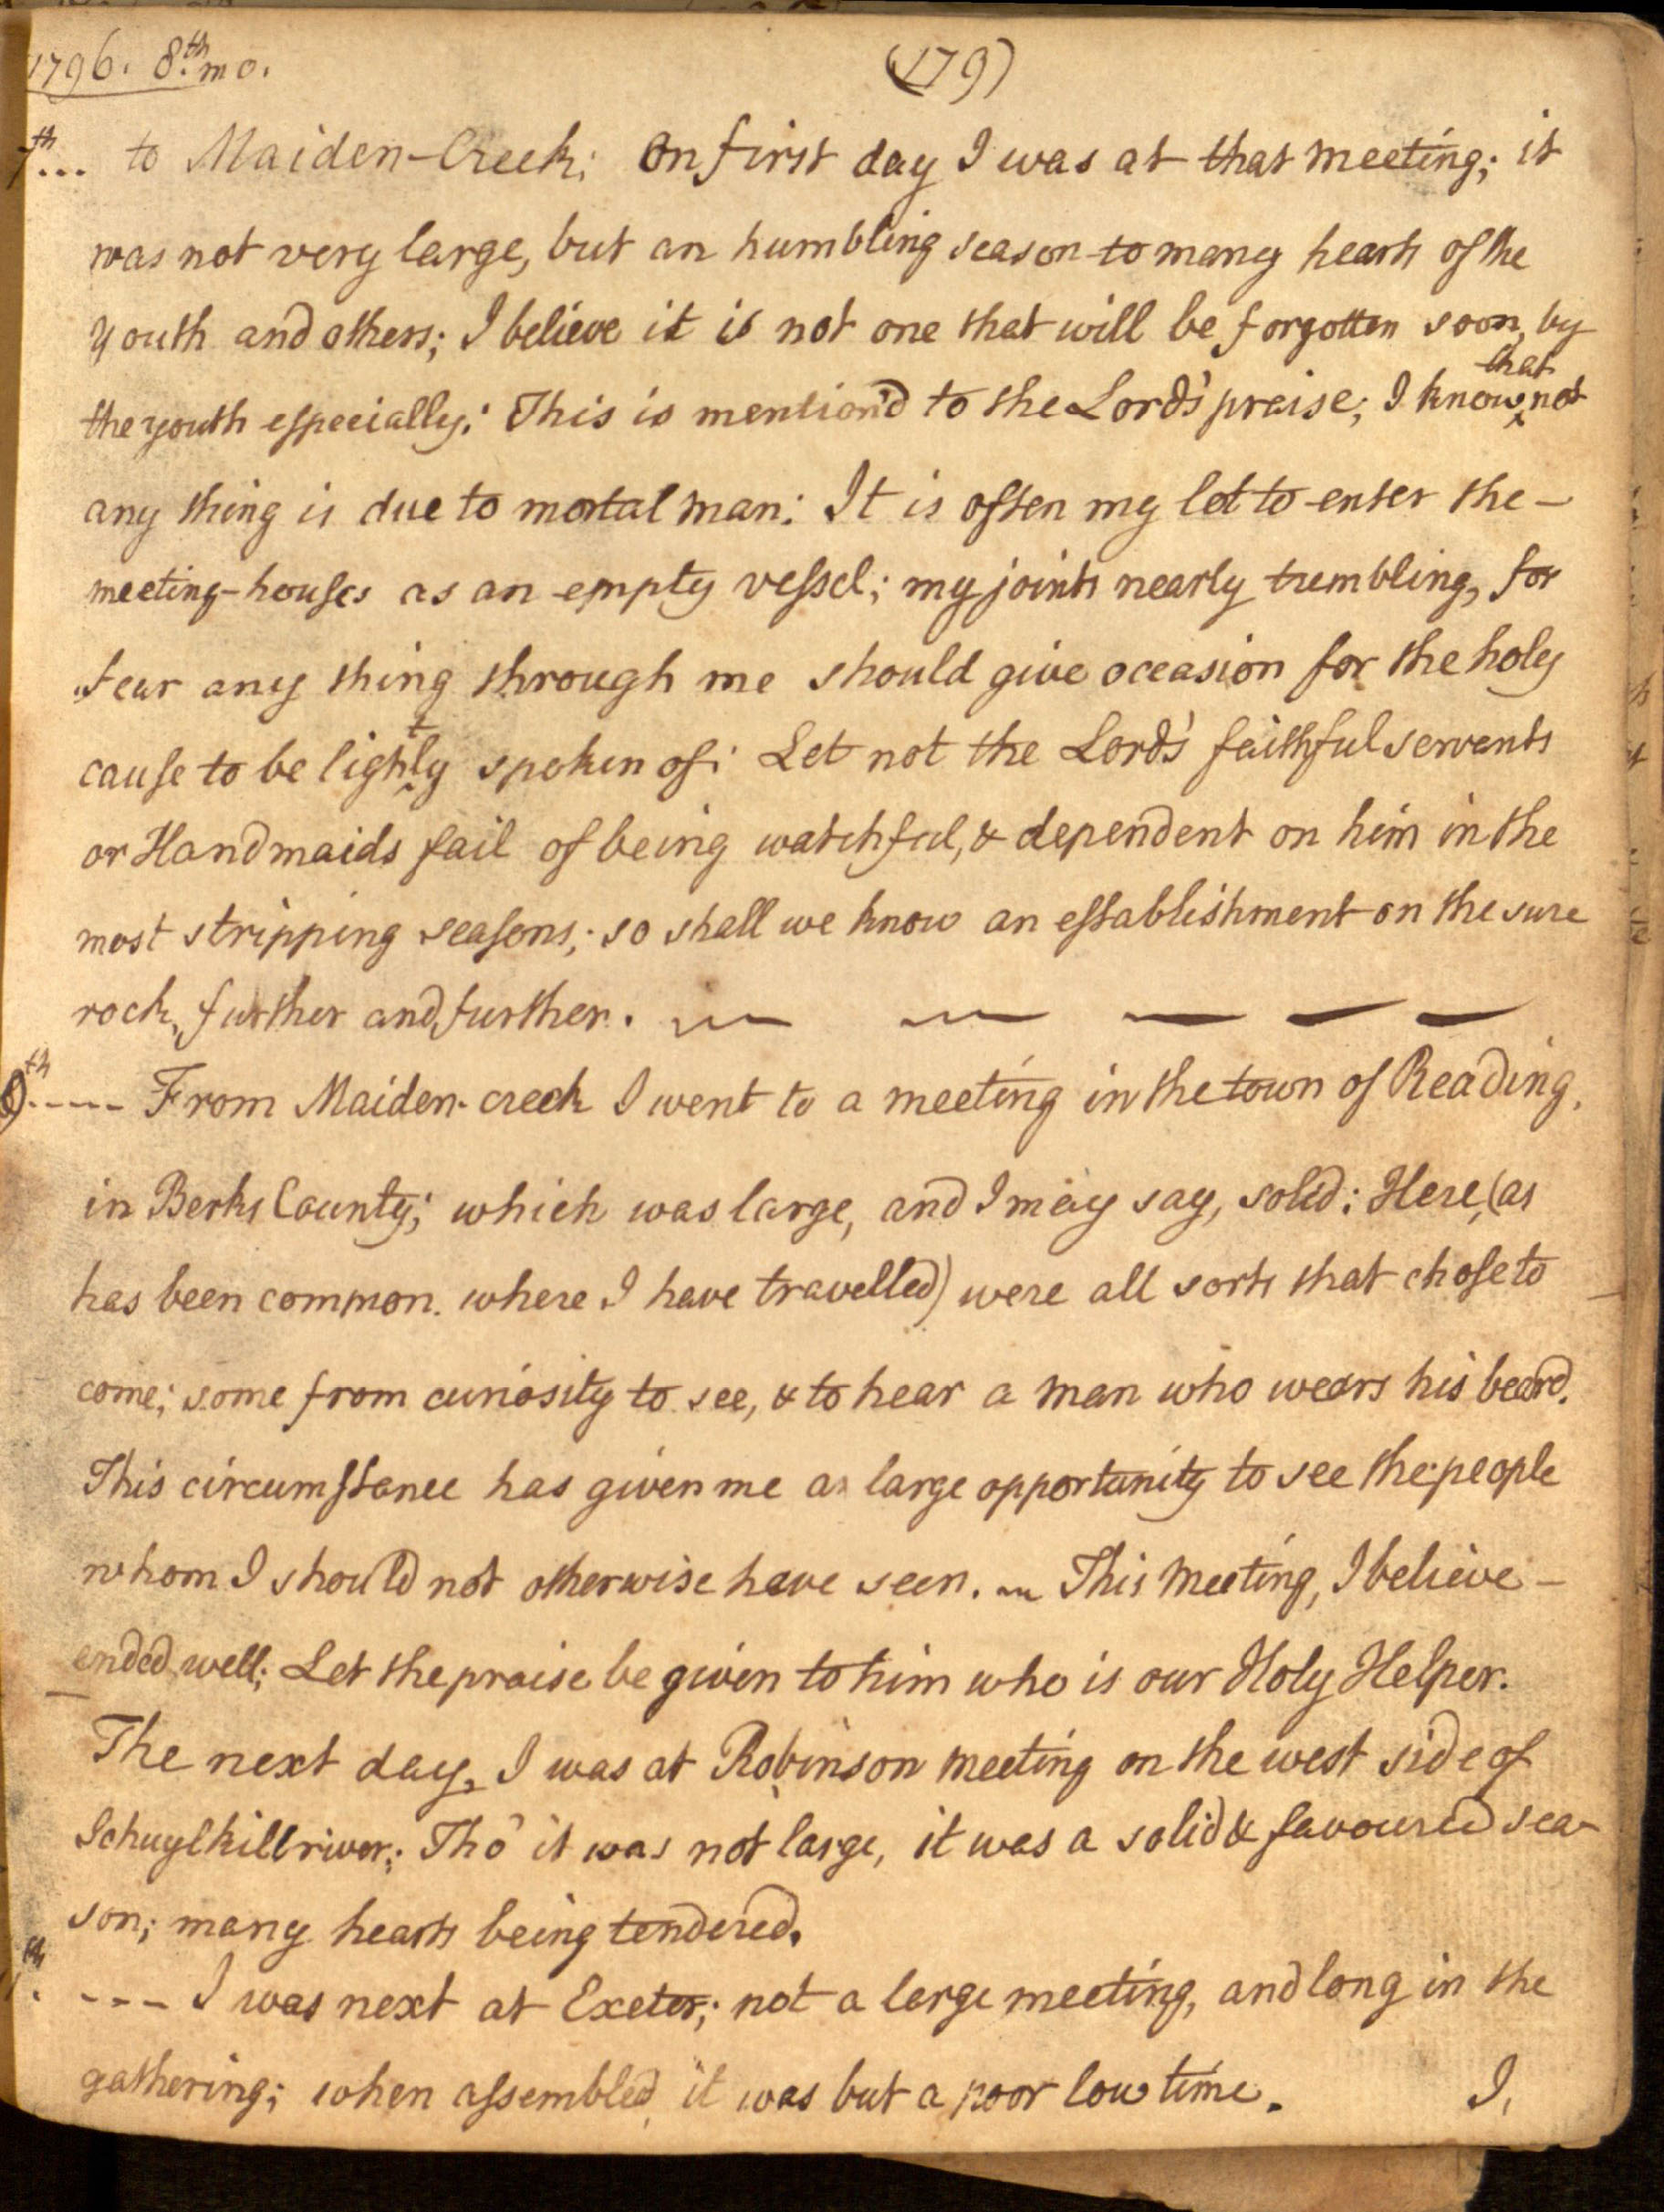 1796. 8.th mo. (179)
7th... to Maiden-Creek; On first day I was at that meeting; it
was not very large, but an humbling season to many hearts of the
youth and others; I believe it is not one that will be forgotten soon, by
the youth especially; This is mention'd to the Lord's praise; I know that not
any thing is due to mortal man: It is often my lot to enter the-
meeting-houses as an empty vessel; my joints nearly trembling, for
fear any thing through me should give occasion for the holy
cause to be lightly spoken of: Let not the Lord's faithful servents
or Handmaids fail of being watchful, & dependent on him in the
most stripping seasons; so shall we know an establishment on the sure
rock, further and further. — — — — —
th
----- From Maiden-creek I went to a meeting in the town of Reading,
in Berks County; which was large, and I may say, solid: Here, (as
has been common. where I have travelled) were all sorts that chose to
come; some from curiosity to see, & to hear a man who wears his beard.
This circumstance has given me a large opportunity to see the people
whom I should not otherwise have seen. ~ This Meeting, I believe-
ended well; Let the praise be given to him who is our Holy Helper.
The next day, I was at Robinson meeting on the west side of
Schuylkill river; Tho' it was not large, it was a solid & favoured sea-
son; many hearts being tendered.
th --- I was next at Exeter; not a large meeting, and long in the
gathering; when assembled, it was but a poor low time. I,